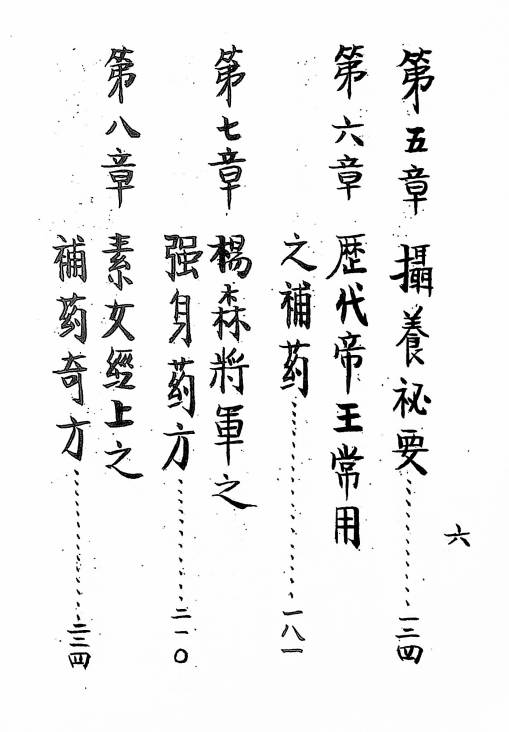 六
第五章 攝養祕要............一三四
第六章 歷代帝王常用
之補药............一八一
第七章 楊森將軍之
强身药方............二一〇
第八章 素女經上之
補药奇方............二三四